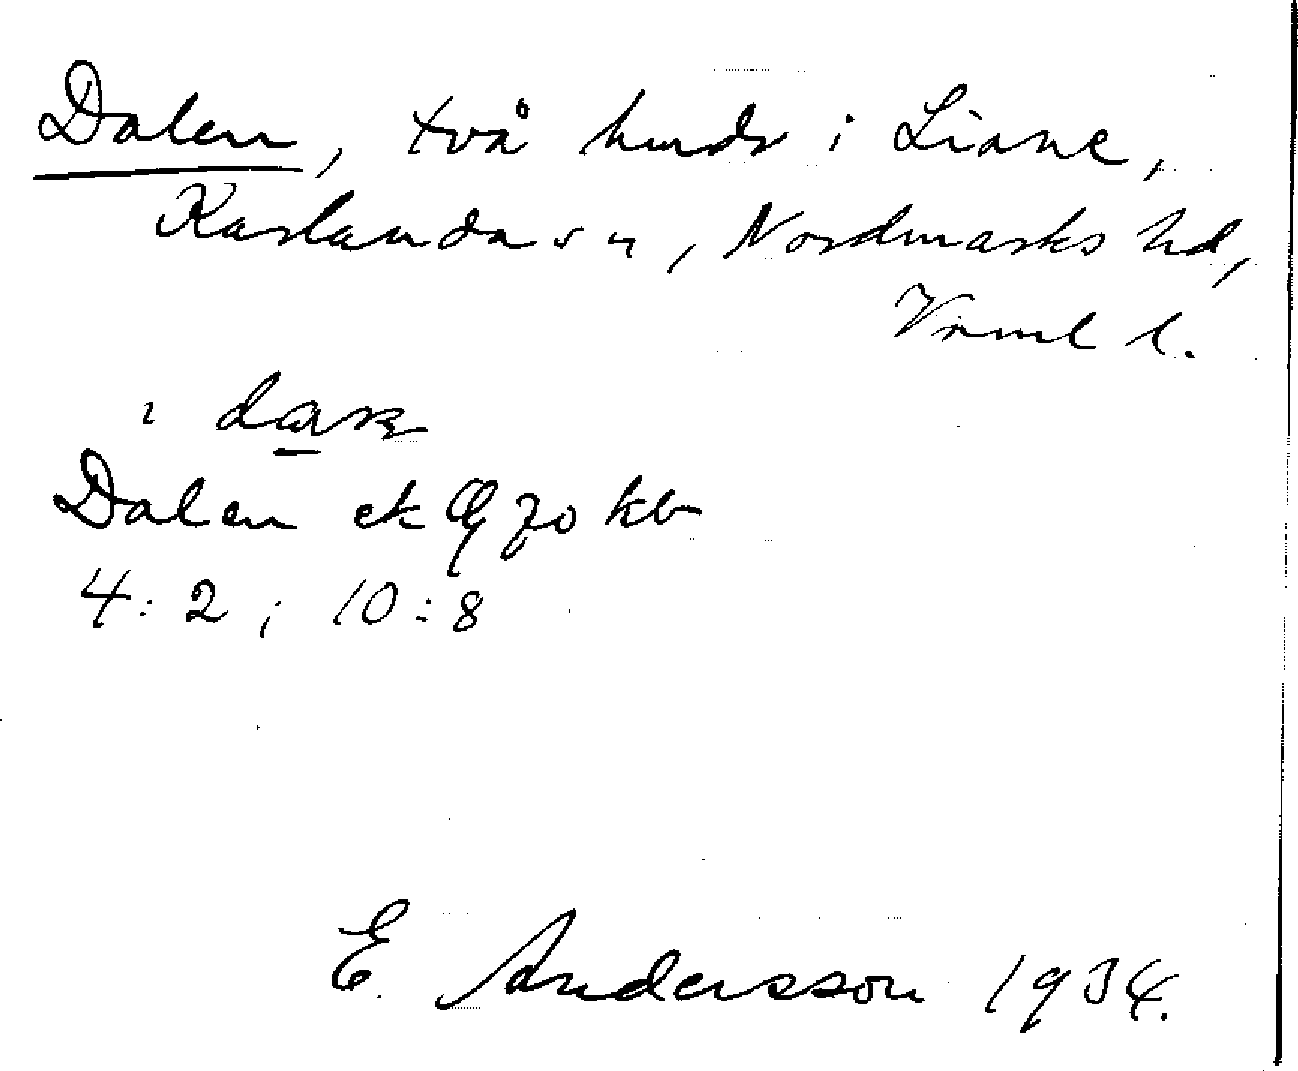 Dalen, två hmdr i Liane,
Karlanda sn, Nordmarks hd,
Värml l.
i
Dalen ek 70 kb
4:2; 10:8
E. Andersson 1934.